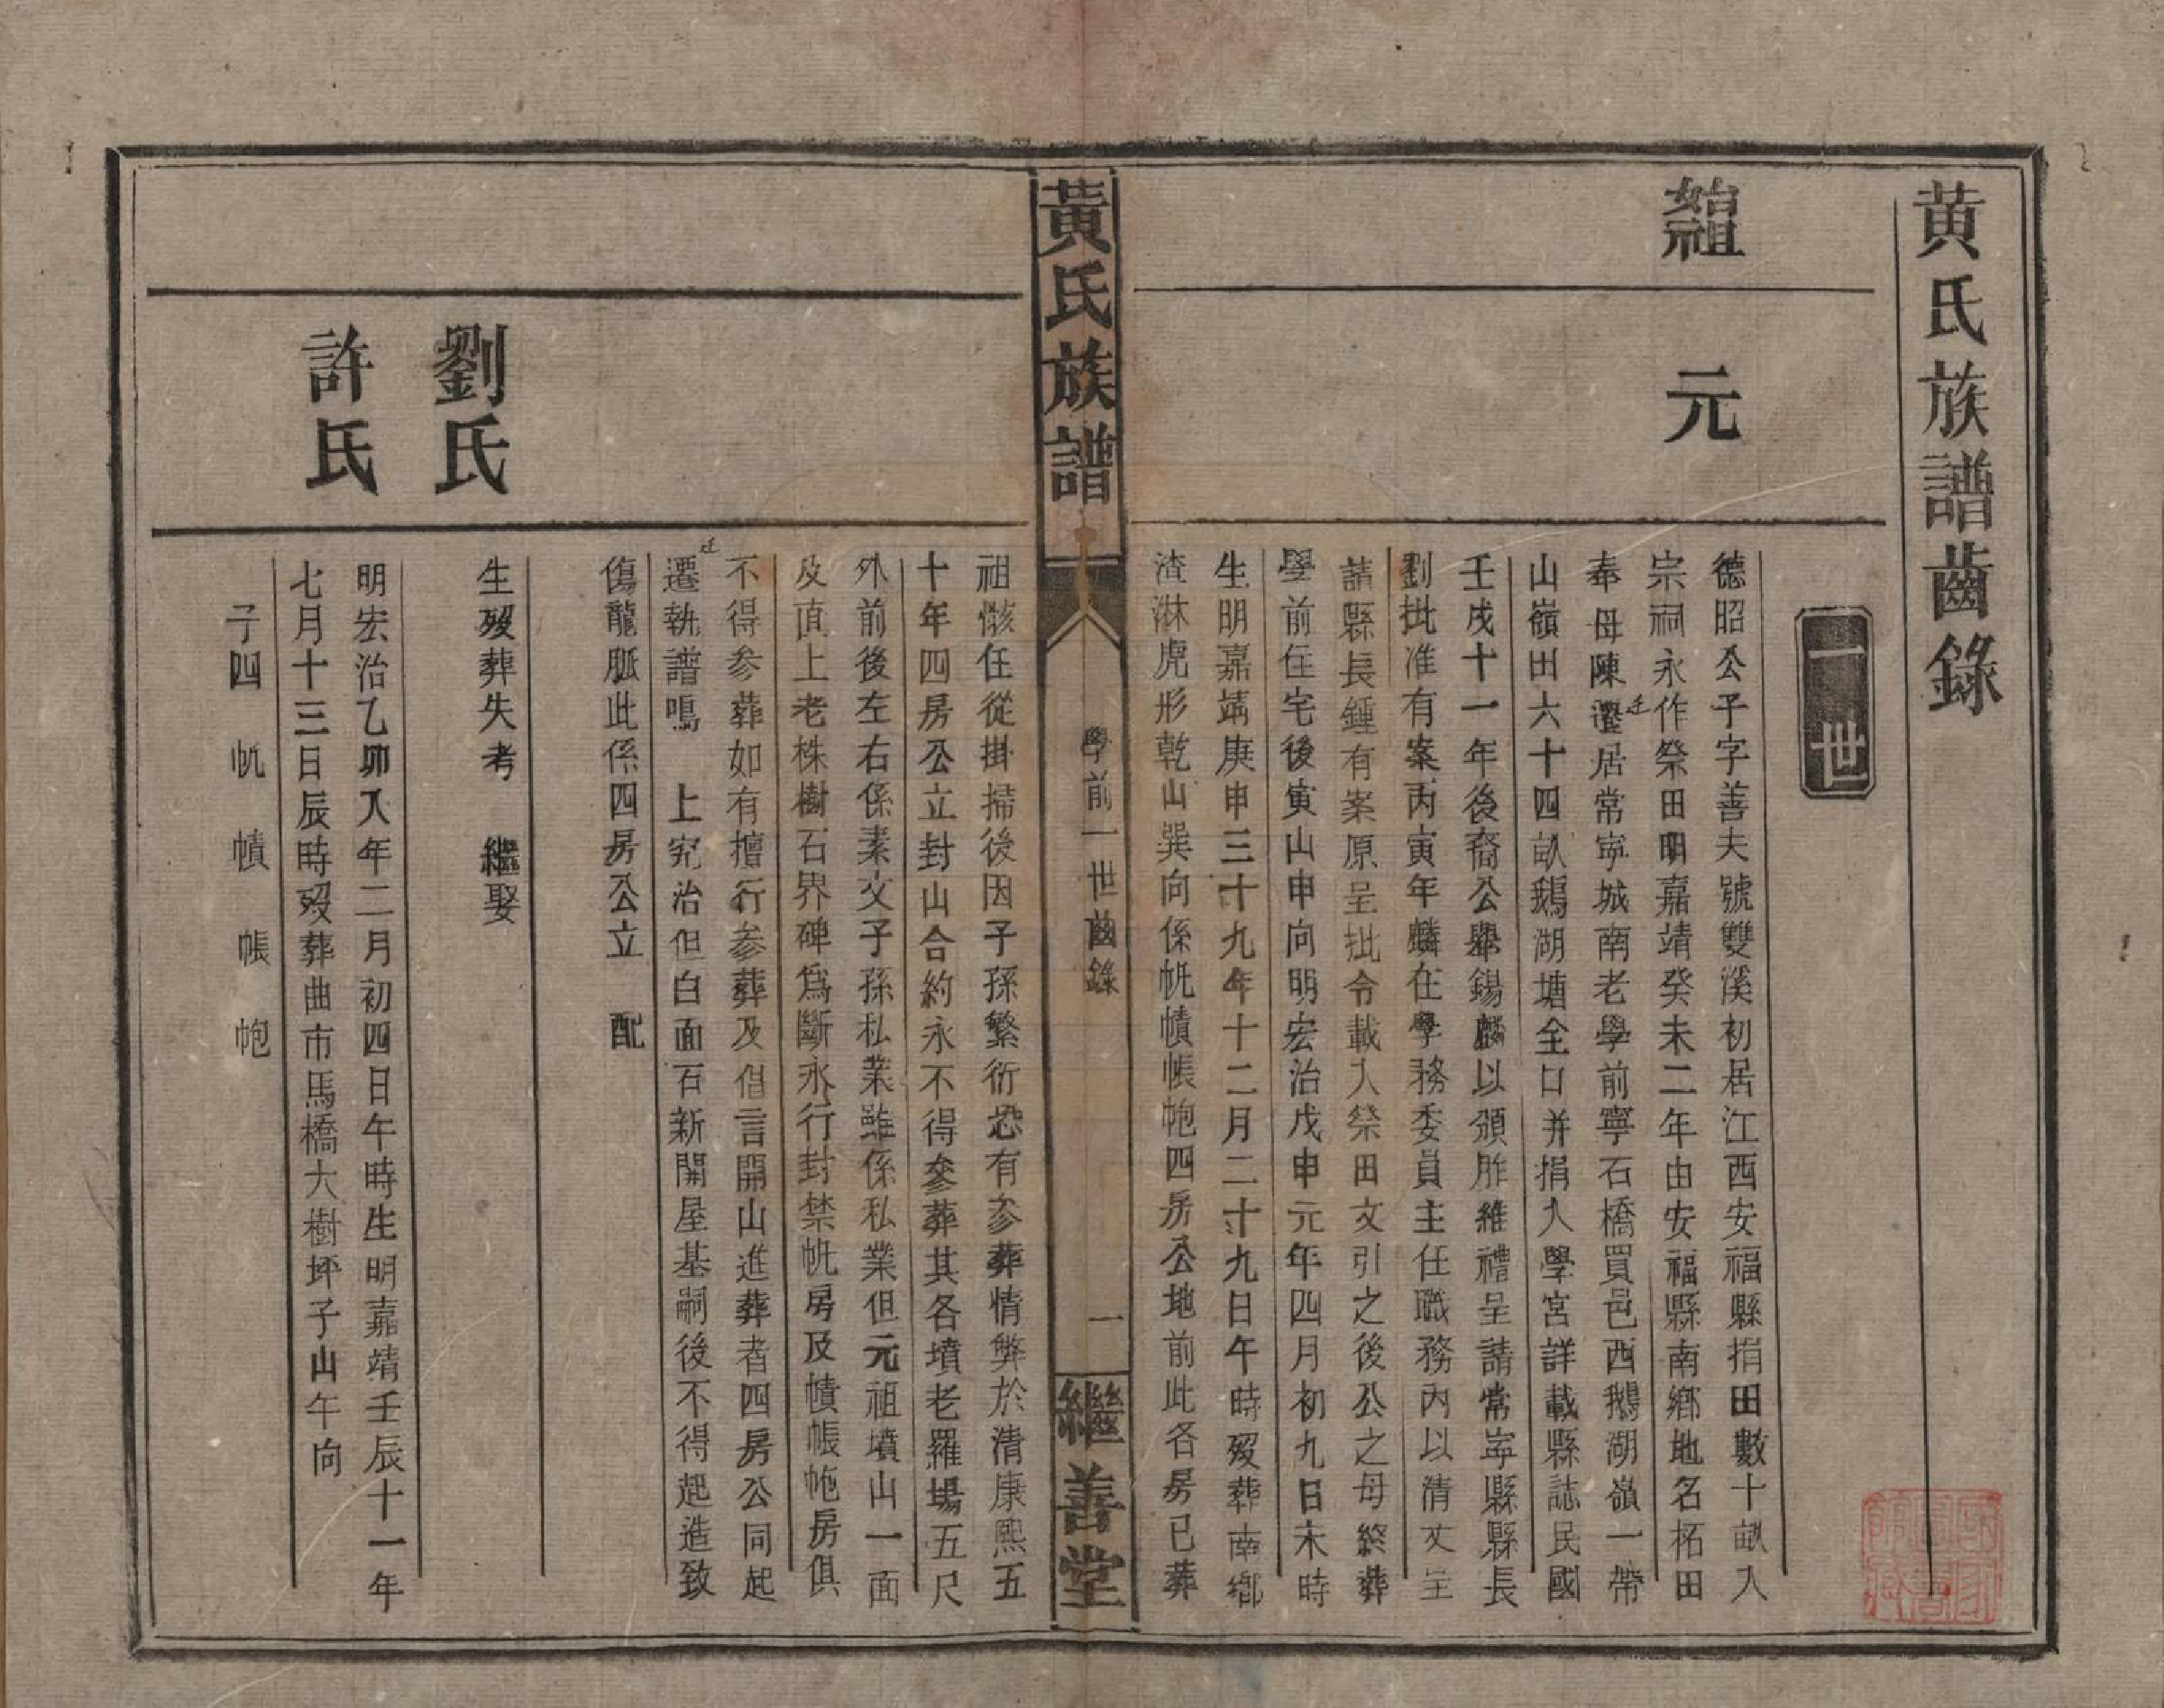 黄氏族譜齒錄
一世
始祖
元
德昭公子字善夫號雙溪初居江西安福縣捐田數十畝入
宗祠永作祭田明嘉靖癸未二年由安福縣南鄉地名柘田
奉母陳遷居常寜城南老學前寧石橋買邑西鵝湖嶺一帶
山嶺田六十四畝鵝湖塘全口并捐入學宮詳載縣誌民國
壬戌十一年後裔公舉錫麟以頒胙維禮呈請常寜縣縣長
劉批准有案丙寅年麟在學務委員主任職務內以清丈呈
請縣長鍾有案原呈批令載入祭田文引之後公之母終葬
學前住宅後寅山申向明宏治戊申元年四月初九日未時
生明嘉靖庚申三十九年十二月二十九日午時歿葬南鄉
渣淋虎形乾山巽向係帆幘帳帊四房公地前此各房已葬
黃氏族譜
學前一世齒錄
一
繼善堂
祖骸任從掛掃後因子孫繁衍恐有參葬情弊於清康熙五
十年四房公立封山合約永不得參葬其各墳老羅場五尺
外前後左右係素文子孫私業雖係私業但元祖墳山一面
及直上老株樹石界碑爲斷永行封禁帆房及幘帳帊房俱
不得參葬如有擅行參葬及借言開山進葬者四房公同起
遷執譜鳴　上究治但白面石新開屋基嗣後不得起造致
傷龍脈此係四房公立　配
劉氏
生歿葬失考　繼娶
許氏
明宏治乙卯八年二月初四日午時生明嘉靖壬辰十一年
七月十三日辰時歿葬曲市馬橋大樹坪子山午向
子四　帆　幘　帳　帊